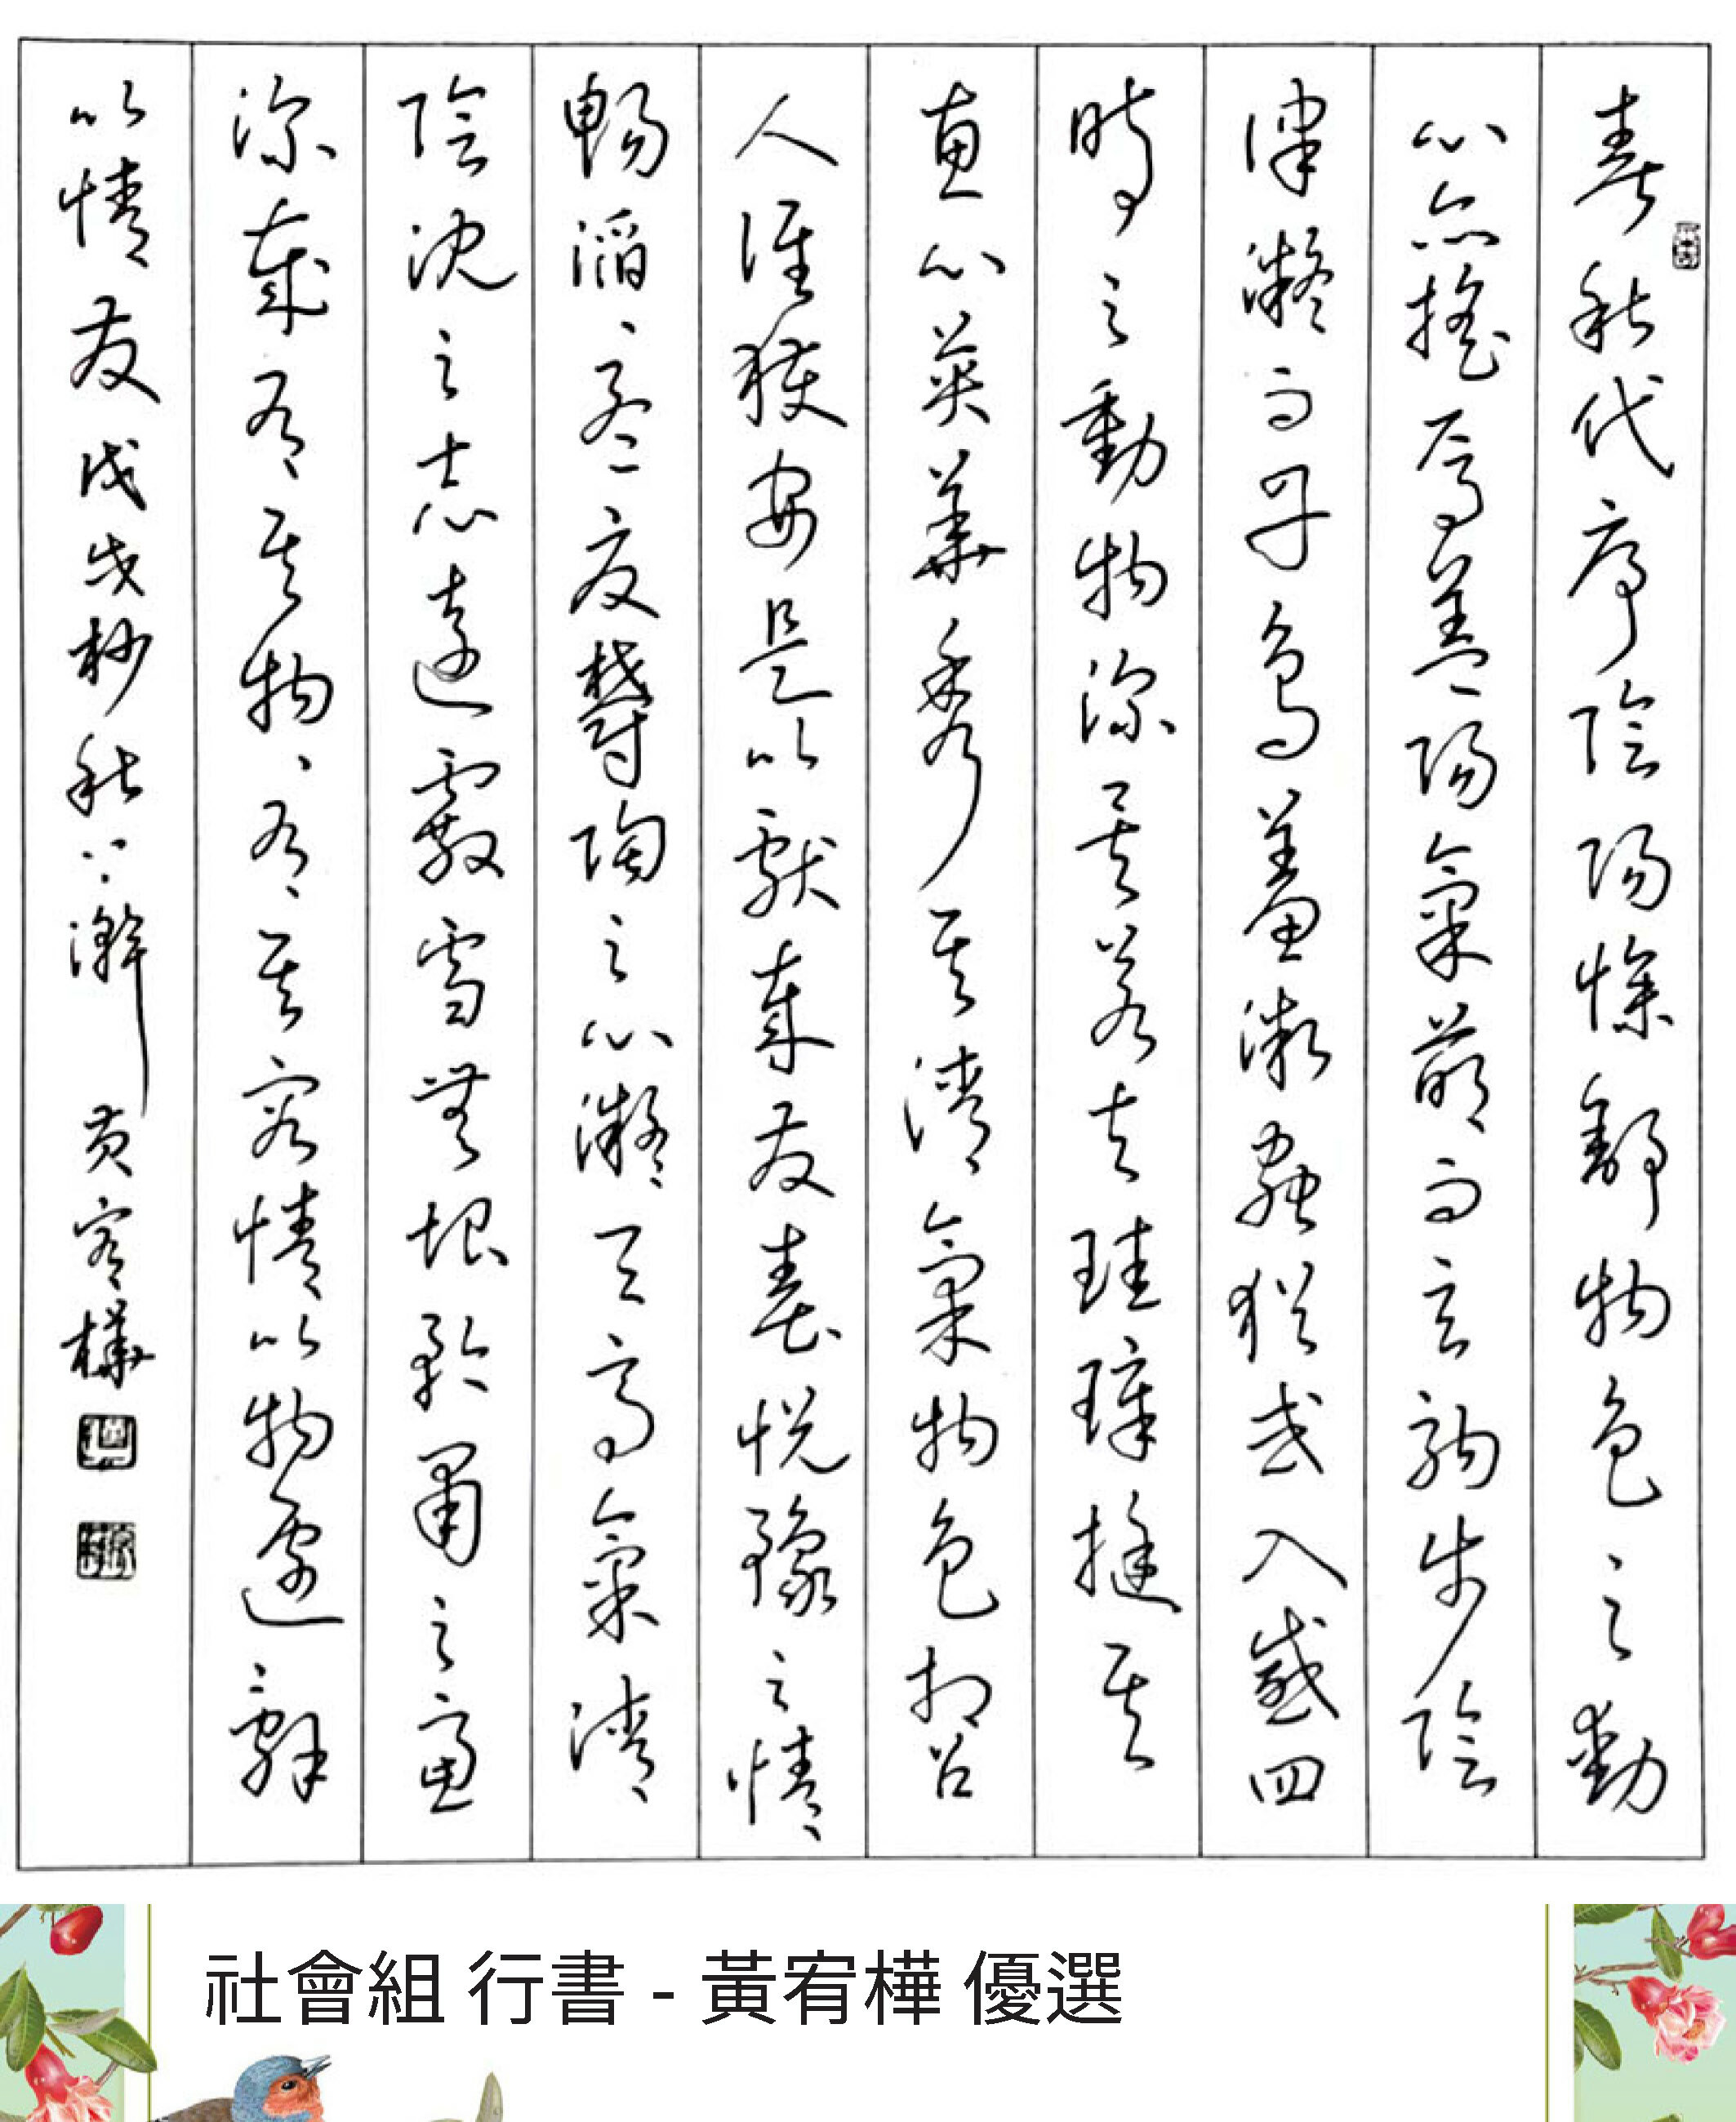 春秋代序陰陽慘舒物色之動
心亦搖焉蓋陽氣萌而玄駒步陰
律凝而丹鳥羞微蟲猶或入感四
時之動物深矣若夫珪璋挺其
惠心英華秀其清氣物色相召
人誰獲安是以獻歲發春悅豫之情
暢滔滔孟夏鬱陶之心凝天高氣清
陰沈之志遠霰雪無垠矜肅之慮
深歲有其物物有其容情以物遷辭
以情發戊戌杪秋 黃宥樺
社會組 行書 - 黃宥樺 優選